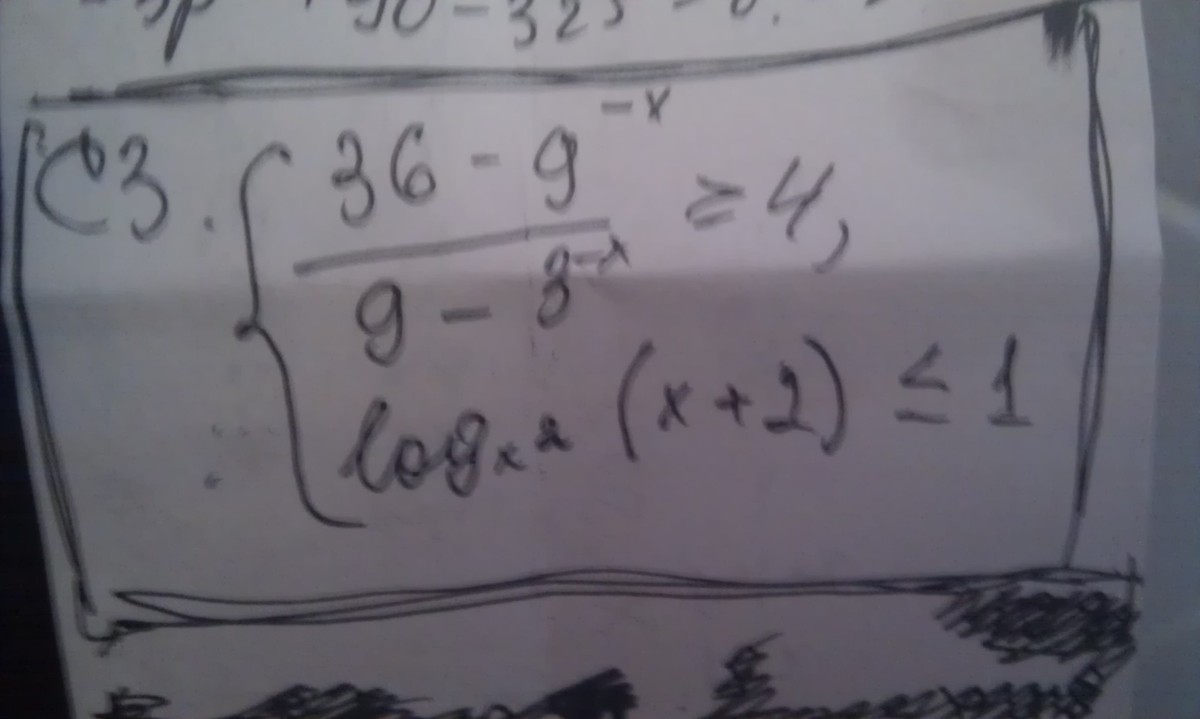 90 - 325
C3. { (36 - 9^{-x}) / (9 - 3^{-x}) ≥ 4,
log_{x^2} (x + 2) ≤ 1